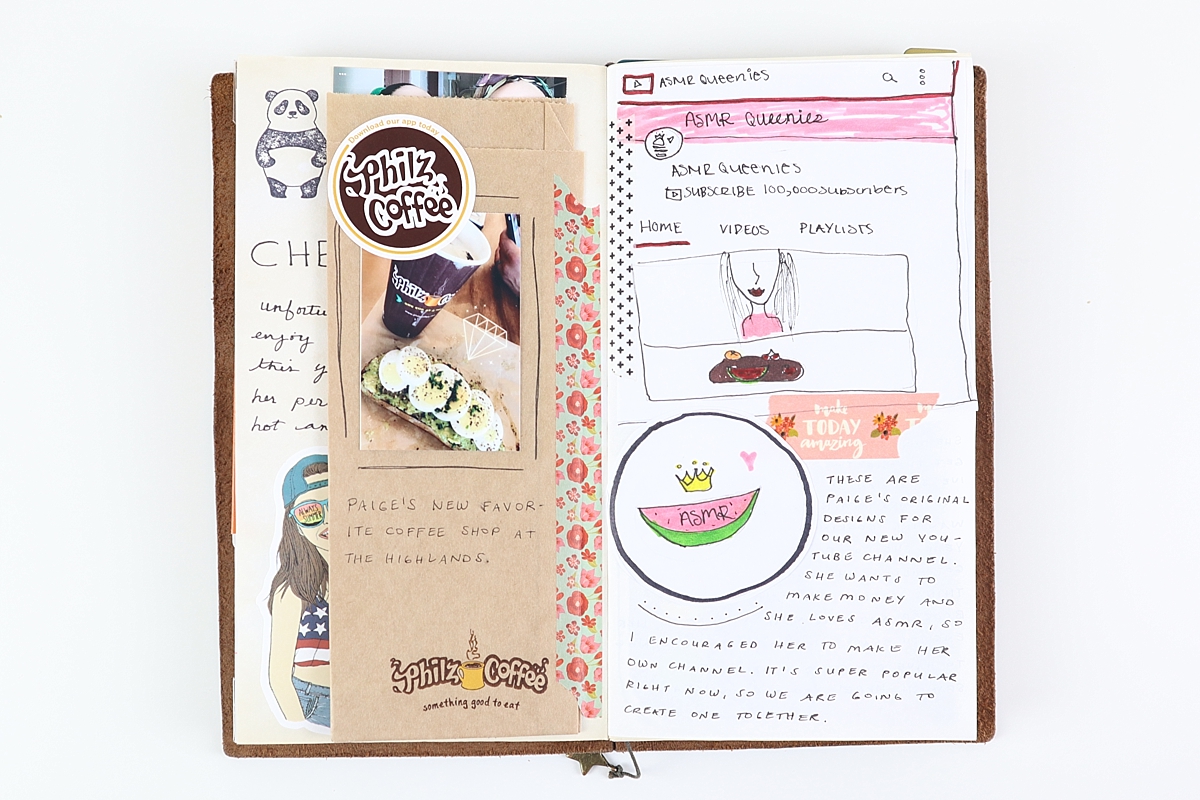 CHE
unfortu
enjoy
this y
her per
hot an
ALWAYS
SUMMER
Download our app today
Philz
Coffee
Philz Co
PAIGE'S NEW FAVOR-
ITE COFFEE SHOP AT
THE HIGHLANDS.
Philz Coffee
something good to eat
ASMR Queenies
ASMR Queenies
ASMR Queenies
SUBSCRIBE 100,000 subscribers
HOME VIDEOS PLAYLISTS
make
TODAY
amazing
ASMR
THESE ARE
PAIGE'S ORIGINAL
DESIGNS FOR
OUR NEW YOU-
TUBE CHANNEL.
SHE WANTS TO
MAKE MONEY AND
SHE LOVES ASMR, SO
I ENCOURAGED HER TO MAKE HER
OWN CHANNEL. IT'S SUPER POPULAR
RIGHT NOW, SO WE ARE GOING TO
CREATE ONE TOGETHER.